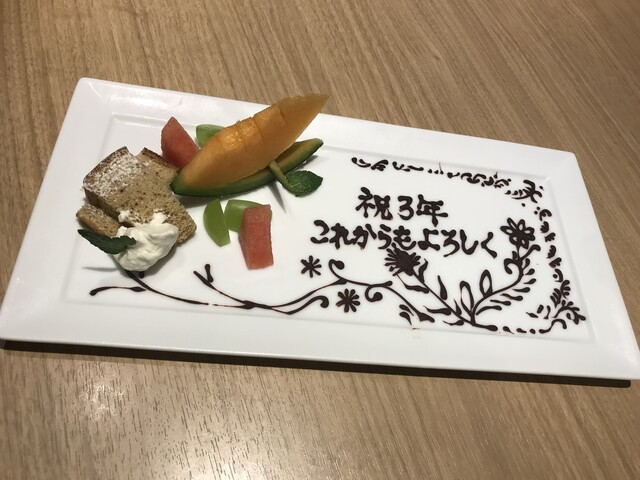 祝3年
これからもよろしく